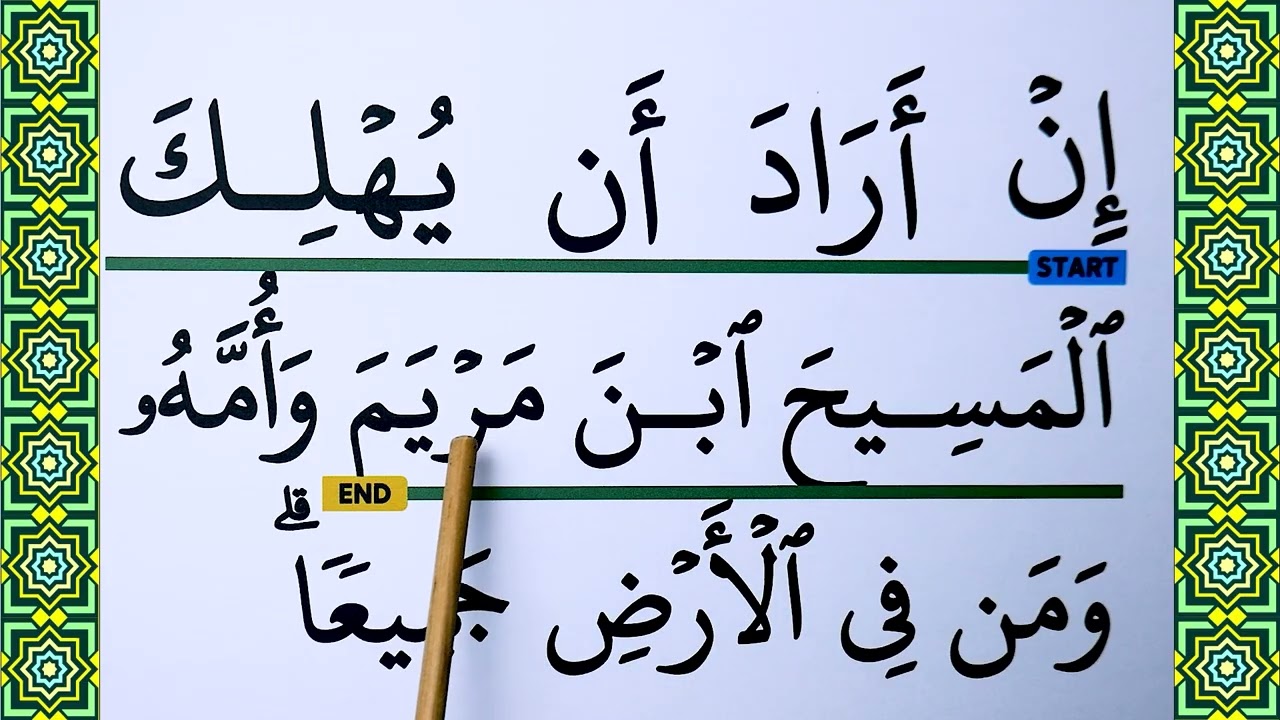 إِنۡ أَرَادَ أَن يُهۡلِكَ
START
ٱلۡمَسِيحَ ٱبۡنَ مَرۡيَمَ وَأُمَّهُۥ
END
وَمَن فِى ٱلۡأَرۡضِ جَمِيعًاۗ